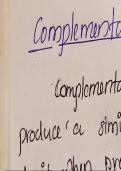 Complementa
Complementa
produce a simi